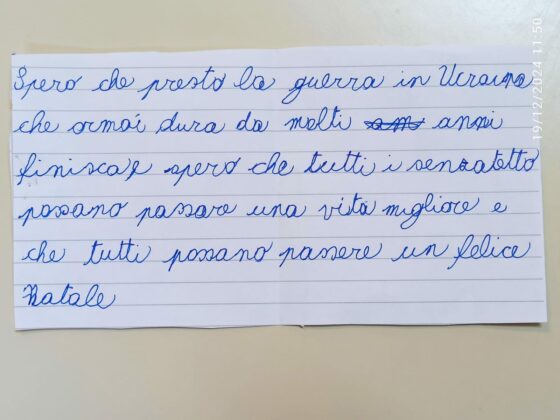 Spero che presto la guerra in Ucraina
che ormai dura da molti anni
finisca e spero che tutti i senzatetto
possano passare una vita migliore e
che tutti possano passere un felice
Natale
19/12/2024 11:50